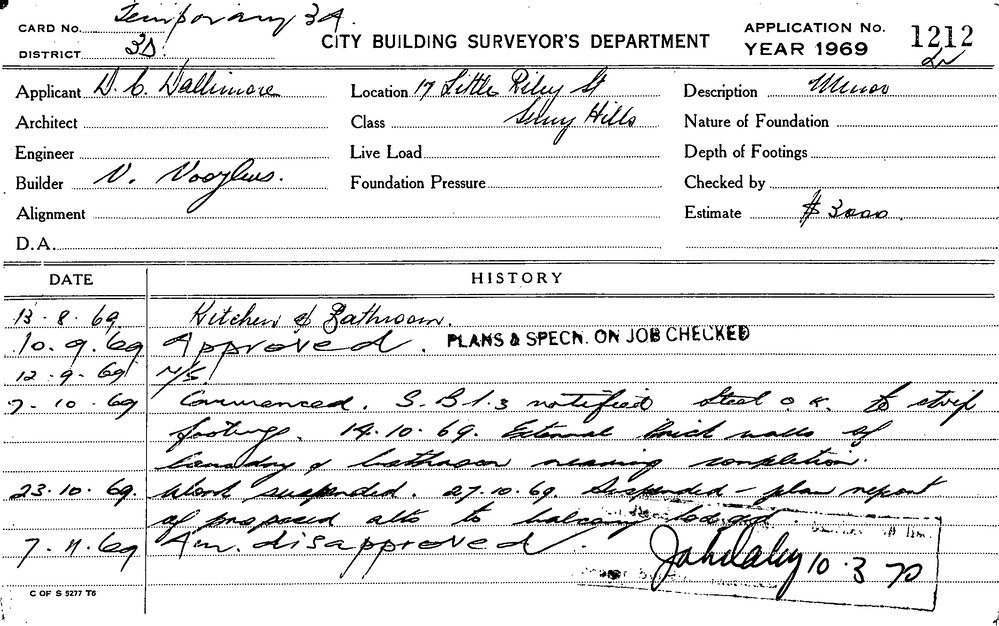 CARD No. Temporary 3A.
DISTRICT 3D.
CITY BUILDING SURVEYOR'S DEPARTMENT
APPLICATION No. 1212
YEAR 1969
Applicant D. C. Dallimore Location 17 Little Riley St Description Minor
Architect Class Surry Hills Nature of Foundation
Engineer Live Load Depth of Footings
Builder V. Foundation Pressure Checked by
Alignment Estimate $3000.
D.A.
DATE HISTORY
13.8.69 Kitchen & Bathroom.
10.9.69 Approved. PLANS & SPECN. ON JOB CHECKED
12.9.69 N/S
7.10.69 Commenced. S.B.1.3 notified Steel o.k. to strip
footings. 14.10.69. External Brick walls of
laundry & bathroom nearing completion.
23.10.69. Work suspended. 27.10.69. Suspended - plan report
of proposed alts to balcony
7.11.69 Am. disapproved.
John Daley 10.3.70
C OF S 5277 T6